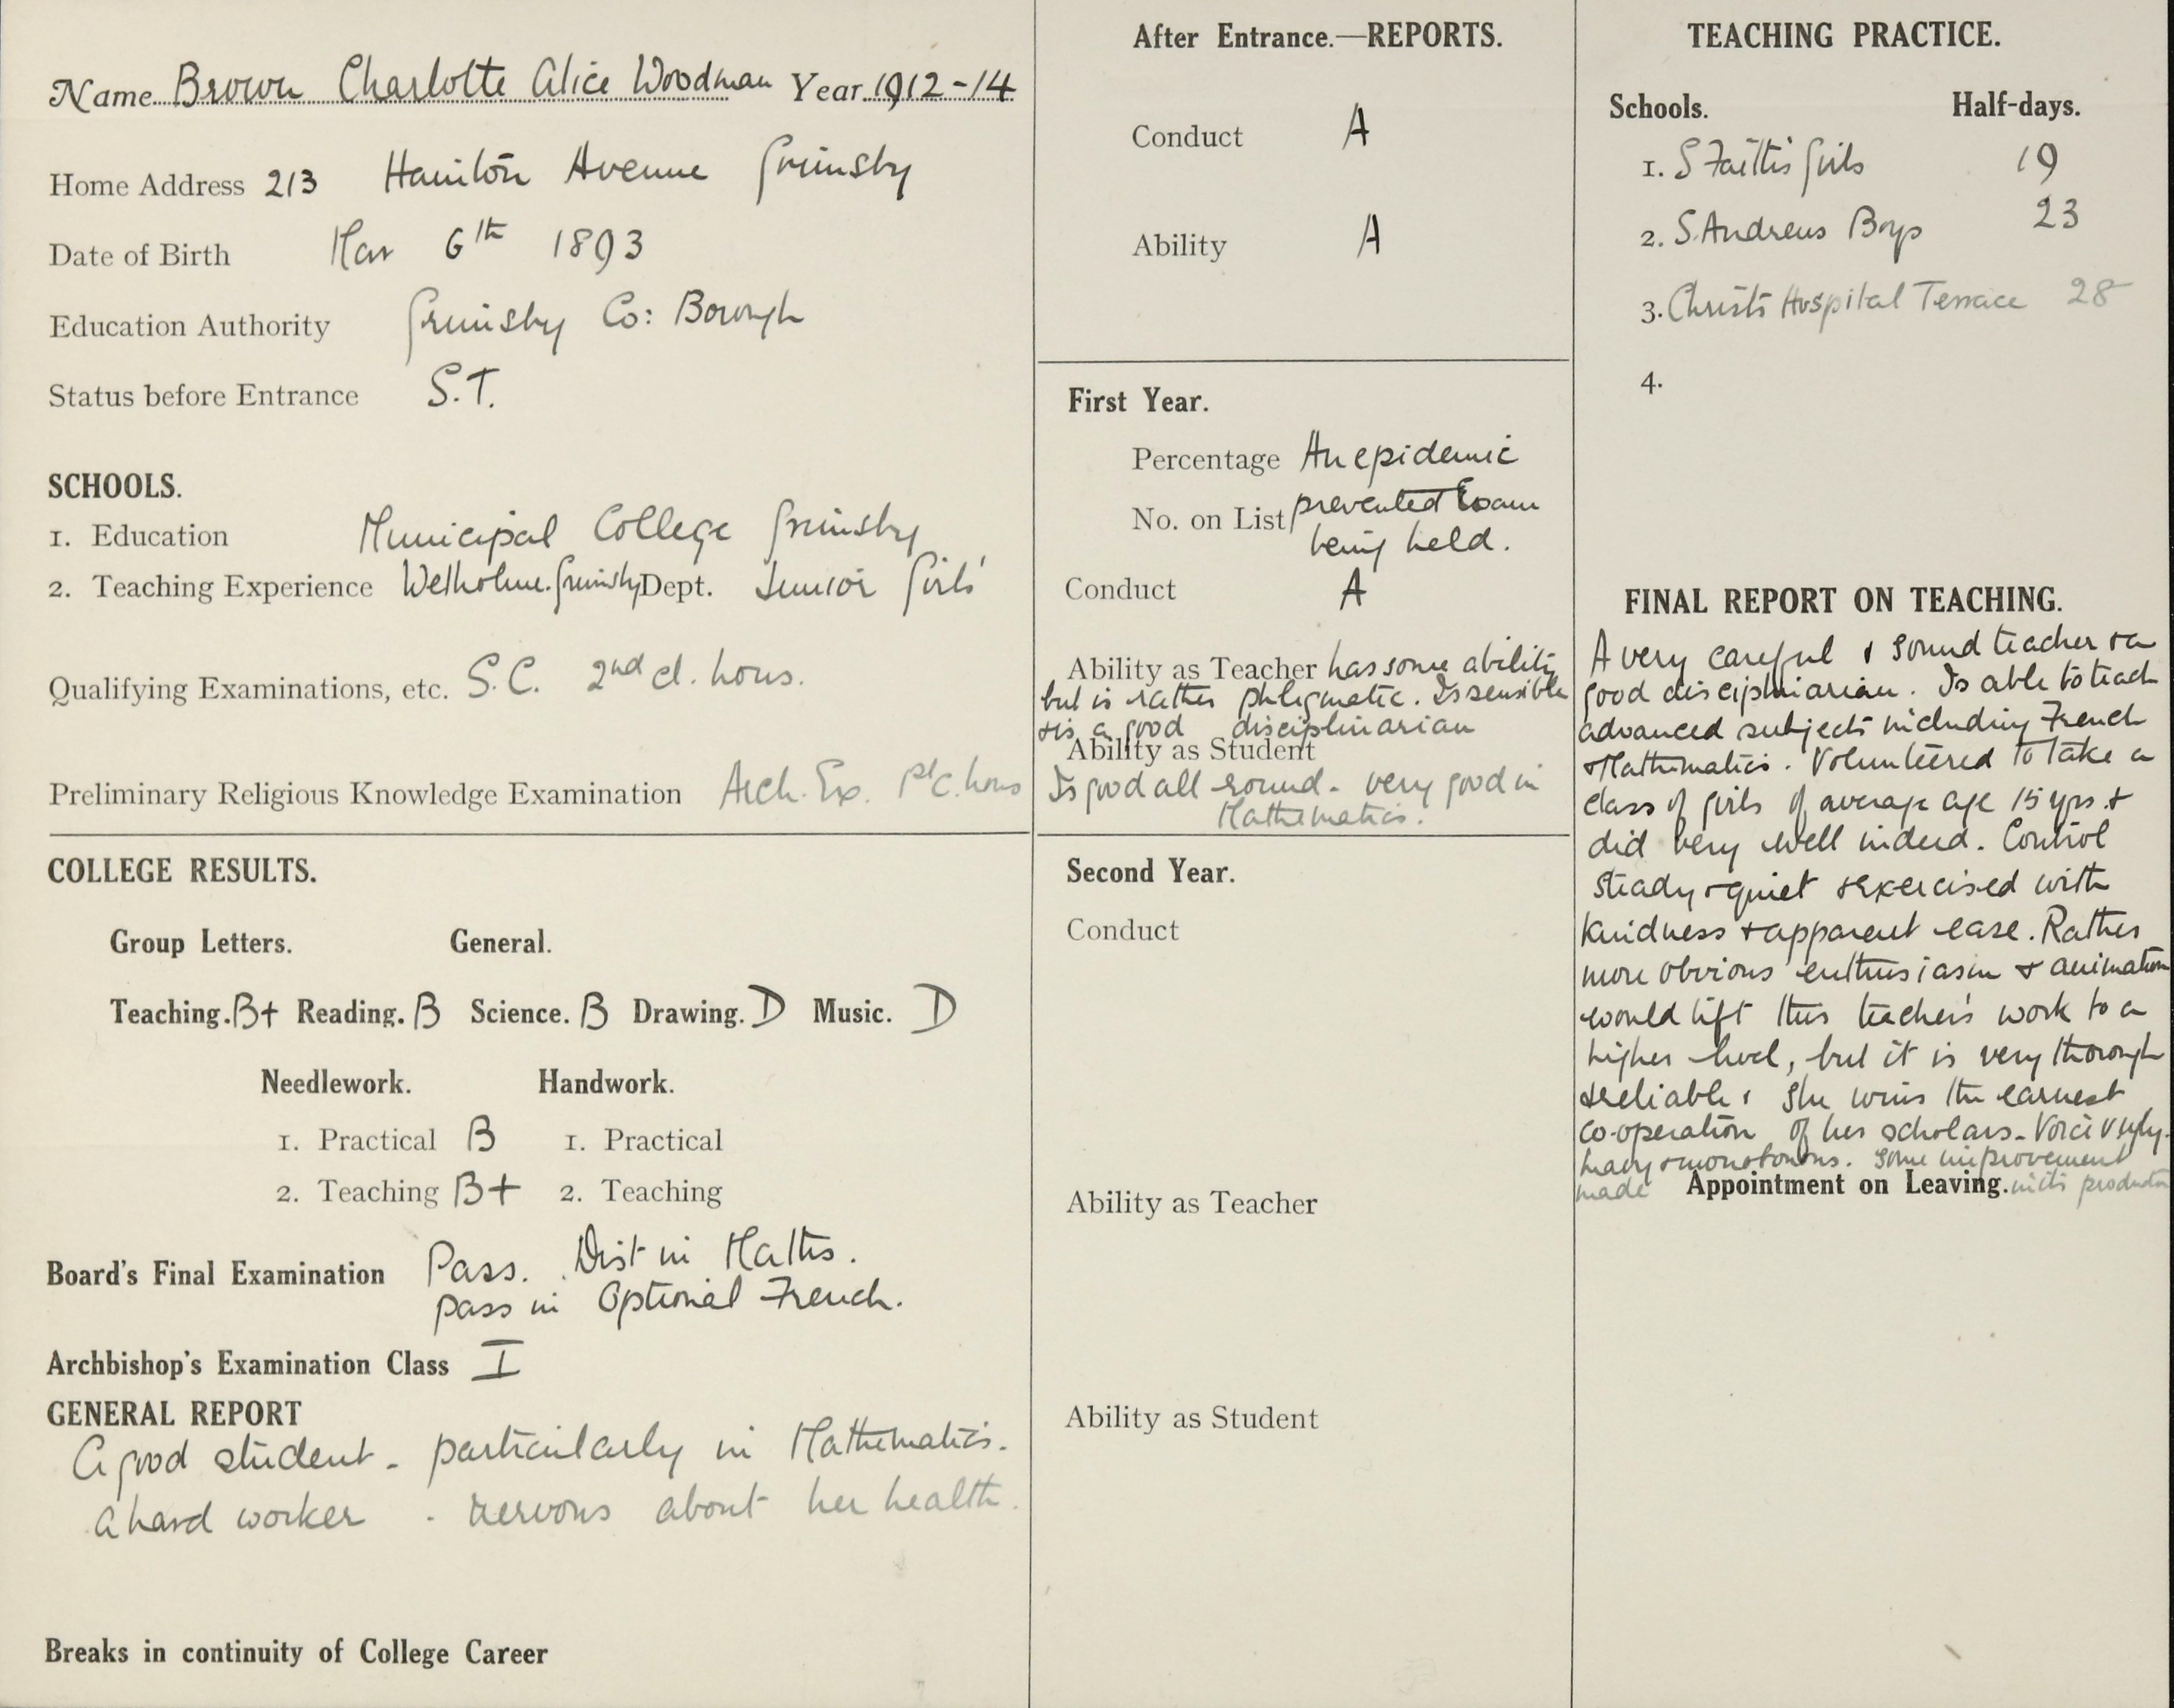 Name Brown Charlotte Alice Woodman Year 1912-14
Home Address 213 Hainton Avenue Grimsby
Date of Birth Mar 6th 1893
Education Authority Grimsby Co: Borough
Status before Entrance S.T.
SCHOOLS.
1. Education Municipal College Grimsby
2. Teaching Experience Welholme. Grimsby Dept. Junior Girls'
Qualifying Examinations, etc. S.C. 2nd cl. hons.
Preliminary Religious Knowledge Examination Arch. Ex. hons
COLLEGE RESULTS.
Group Letters. General.
Teaching. B+ Reading. B Science. B Drawing. D Music. D
Needlework. Handwork.
1. Practical B 1. Practical
2. Teaching B+ 2. Teaching
Board's Final Examination Pass. Dist in Maths.
pass in Optional French.
Archbishop's Examination Class I
GENERAL REPORT
A good student - particularly in Mathematics.
A hard worker - nervous about her health.
Breaks in continuity of College Career
After Entrance.—REPORTS.
Conduct A
Ability A
First Year.
Percentage An epidemic
No. on List prevented Exam
being held.
Conduct A
Ability as Teacher has some ability
but is rather phlegmatic. Is sensible
& is a good disciplinarian
Ability as Student
Is good all round - very good in
Mathematics.
Second Year.
Conduct
Ability as Teacher
Ability as Student
TEACHING PRACTICE.
Schools. Half-days.
1. S Faith's Girls 19
2. S. Andrews Boys 23
3. Christ's Hospital Terrace 28
4.
FINAL REPORT ON TEACHING.
A very careful & sound teacher & a
good disciplinarian. Is able to teach
advanced subjects including French
& Mathematics. Volunteered to take a
class of girls of average age 15 yrs &
did very well indeed. Control
steady & quiet & exercised with
kindness & apparent ease. Rather
more obvious enthusiasm & animation
would lift this teacher's work to a
higher level, but it is very thorough
& reliable & she wins the earnest
co-operation of her scholars. Voice v ugly -
heavy & monotonous. Some improvement
made in its production
Appointment on Leaving.